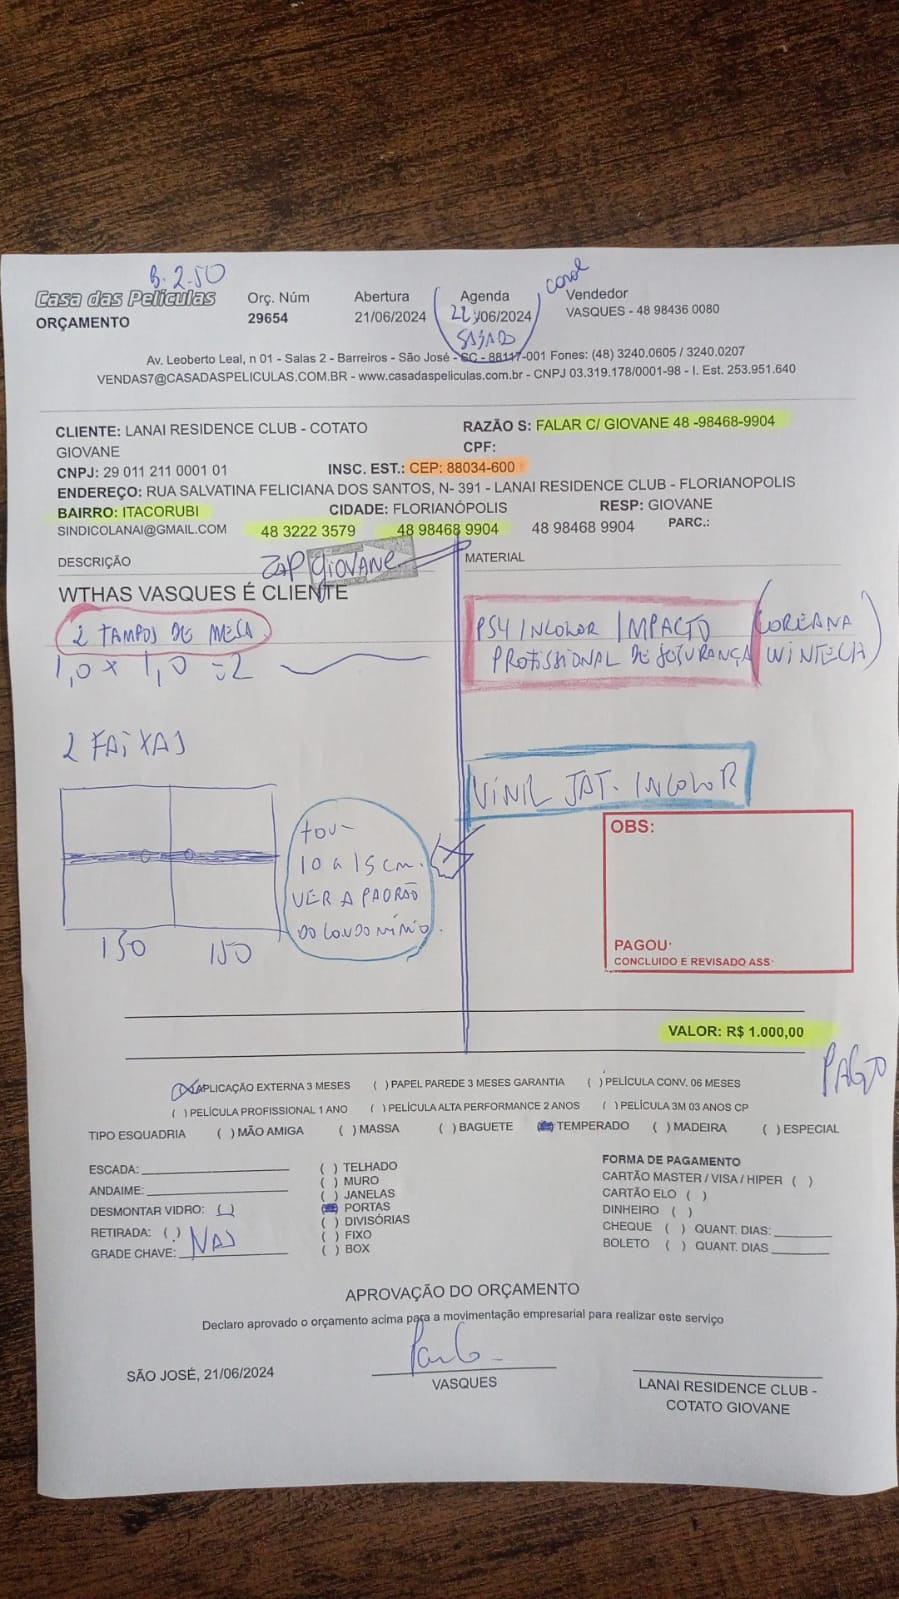 B. 2.50
Casa das Películas
ORÇAMENTO
Orç. Núm
29654
Abertura
21/06/2024
Agenda
22/06/2024
SÁBADO
Vendedor
VASQUES - 48 98436 0080
Av. Leoberto Leal, n 01 - Salas 2 - Barreiros - São José - SC - 88117-001 Fones: (48) 3240.0605 / 3240.0207
VENDAS7@CASADASPELICULAS.COM.BR - www.casadaspeliculas.com.br - CNPJ 03.319.178/0001-98 - I. Est. 253.951.640
CLIENTE: LANAI RESIDENCE CLUB - COTATO GIOVANE
RAZÃO S: FALAR C/ GIOVANE 48 -98468-9904
CPF:
CNPJ: 29 011 211 0001 01
INSC. EST.: CEP: 88034-600
ENDEREÇO: RUA SALVATINA FELICIANA DOS SANTOS, N- 391 - LANAI RESIDENCE CLUB - FLORIANOPOLIS
BAIRRO: ITACORUBI CIDADE: FLORIANÓPOLIS RESP: GIOVANE
SINDICOLANAI@GMAIL.COM 48 3222 3579 48 98468 9904 48 98468 9904 PARC.:
DESCRIÇÃO
ZAP GIOVANE
MATERIAL
WTHAS VASQUES É CLIENTE
2 TAMPOS DE MESA
1,0 x 1,0 = 2
PS4 INCOLOR IMPACTO (COREANA
PROFISSIONAL DE SEGURANÇA WINTECH)
2 FAIXAS
VINIL JAT. INCOLOR
10 a 15 cm.
VER A PADRÃO
DO CONDOMÍNIO.
150 150
OBS:
PAGOU:
CONCLUIDO E REVISADO ASS:
VALOR: R$ 1.000,00
PAGO
(X) APLICAÇÃO EXTERNA 3 MESES ( ) PAPEL PAREDE 3 MESES GARANTIA ( ) PELÍCULA CONV. 06 MESES
( ) PELÍCULA PROFISSIONAL 1 ANO ( ) PELÍCULA ALTA PERFORMANCE 2 ANOS ( ) PELÍCULA 3M 03 ANOS CP
TIPO ESQUADRIA ( ) MÃO AMIGA ( ) MASSA ( ) BAGUETE ( ) TEMPERADO ( ) MADEIRA ( ) ESPECIAL
ESCADA:
ANDAIME:
DESMONTAR VIDRO: ( )
RETIRADA: ( )
GRADE CHAVE:
( ) TELHADO
( ) MURO
( ) JANELAS
( ) PORTAS
( ) DIVISÓRIAS
( ) FIXO
( ) BOX
FORMA DE PAGAMENTO
CARTÃO MASTER / VISA / HIPER ( )
CARTÃO ELO ( )
DINHEIRO ( )
CHEQUE ( ) QUANT. DIAS:
BOLETO ( ) QUANT. DIAS
APROVAÇÃO DO ORÇAMENTO
Declaro aprovado o orçamento acima para a movimentação empresarial para realizar este serviço
SÃO JOSÉ, 21/06/2024
VASQUES
LANAI RESIDENCE CLUB -
COTATO GIOVANE